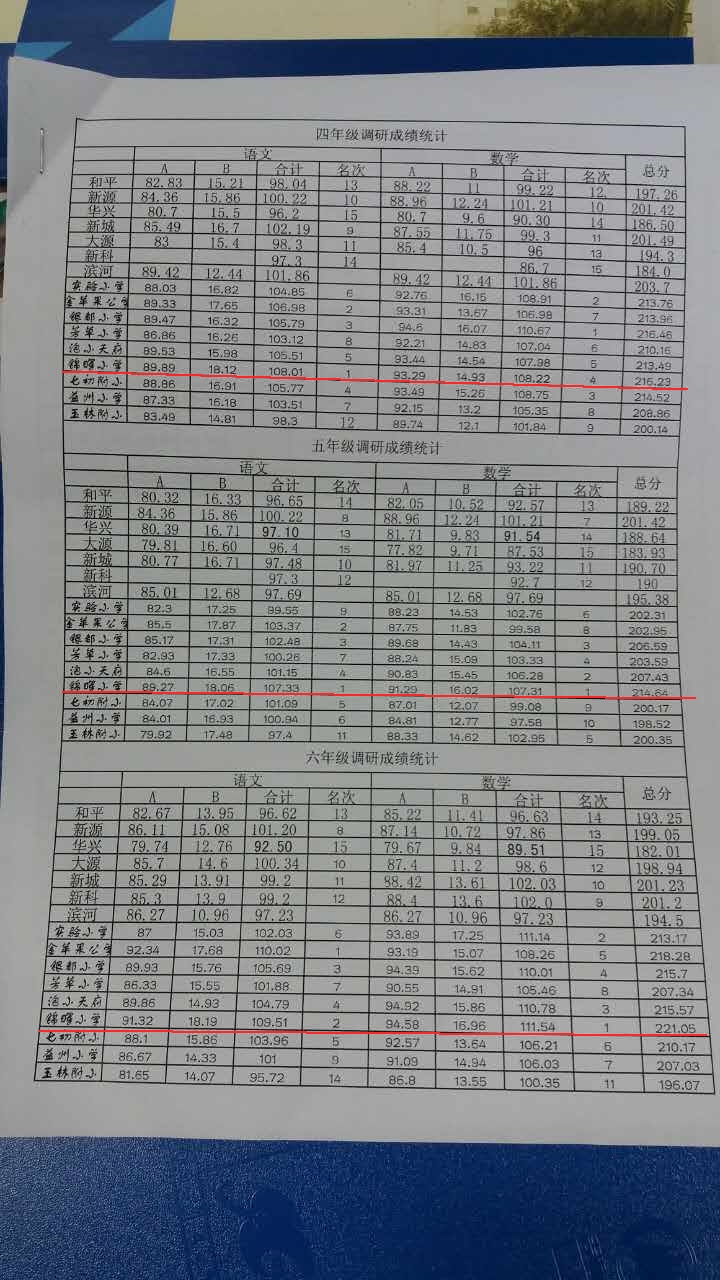 四年级调研成绩统计
语文 数学 总分
A B 合计 名次 A B 合计 名次
和平 82.83 15.21 98.04 13 88.22 11 99.22 12. 197.26
新源 84.36 15.86 100.22 10 88.96 12.24 101.21 10 201.42
华兴 80.7 15.5 96.2 15 80.7 9.6 90.30 14 186.50
新城 85.49 16.7 102.19 9 87.55 11.75 99.3 11 201.49
大源 83 15.4 98.3 11 85.4 10.5 96 13 194.3
新科 97.3 14 86.7 15 184.0
滨河 89.42 12.44 101.86 89.42 12.44 101.86 203.7
实验小学 88.03 16.82 104.85 6 92.76 16.15 108.91 2 213.76
金苹果公学 89.33 17.65 106.98 2 93.31 13.67 106.98 7 213.96
银都小学 89.47 16.32 105.79 3 94.6 16.07 110.67 1 216.46
芳草小学 86.86 16.26 103.12 8 92.21 14.83 107.04 6 210.16
泡小天府 89.53 15.98 105.51 5 93.44 14.54 107.98 5 213.49
锦晖小学 89.89 18.12 108.01 1 93.29 14.93 108.22 4 216.23
七初附小 88.86 16.91 105.77 4 93.49 15.26 108.75 3 214.52
益州小学 87.33 16.18 103.51 7 92.15 13.2 105.35 8 208.86
玉林附小 83.49 14.81 98.3 12 89.74 12.1 101.84 9 200.14
五年级调研成绩统计
语文 数学 总分
A B 合计 名次 A B 合计 名次
和平 80.32 16.33 96.65 14 82.05 10.52 92.57 13 189.22
新源 84.36 15.86 100.22 8 88.96 12.24 101.21 7 201.42
华兴 80.39 16.71 97.10 13 81.71 9.83 91.54 14 188.64
大源 79.81 16.60 96.4 15 77.82 9.71 87.53 15 183.93
新城 80.77 16.71 97.48 10 81.97 11.25 93.22 11 190.70
新科 97.3 12 92.7 12 190
滨河 85.01 12.68 97.69 85.01 12.68 97.69 195.38
实验小学 82.3 17.25 99.55 9 88.23 14.53 102.76 6 202.31
金苹果公学 85.5 17.87 103.37 2 87.75 11.83 99.58 8 202.95
银都小学 85.17 17.31 102.48 3 89.68 14.43 104.11 3 206.59
芳草小学 82.93 17.33 100.26 7 88.24 15.09 103.33 4 203.59
泡小天府 84.6 16.55 101.15 4 90.83 15.45 106.28 2 207.43
锦晖小学 89.27 18.06 107.33 1 91.29 16.02 107.31 1 214.64
七初附小 84.07 17.02 101.09 5 87.01 12.07 99.08 9 200.17
益州小学 84.01 16.93 100.94 6 84.81 12.77 97.58 10 198.52
玉林附小 79.92 17.48 97.4 11 88.33 14.62 102.95 5 200.35
六年级调研成绩统计
语文 数学 总分
A B 合计 名次 A B 合计 名次
和平 82.67 13.95 96.62 13 85.22 11.41 96.63 14 193.25
新源 86.11 15.08 101.20 8 87.14 10.72 97.86 13 199.05
华兴 79.74 12.76 92.50 15 79.67 9.84 89.51 15 182.01
大源 85.7 14.6 100.34 10 87.4 11.2 98.6 12 198.94
新城 85.29 13.91 99.2 11 88.42 13.61 102.03 10 201.23
新科 85.3 13.9 99.2 12 88.4 13.6 102.0 9 201.2
滨河 86.27 10.96 97.23 86.27 10.96 97.23 194.5
实验小学 87 15.03 102.03 6 93.89 17.25 111.14 2 213.17
金苹果公学 92.34 17.68 110.02 1 93.19 15.07 108.26 5 218.28
银都小学 89.93 15.76 105.69 3 94.39 15.62 110.01 4 215.7
芳草小学 86.33 15.55 101.88 7 90.55 14.91 105.46 8 207.34
泡小天府 89.86 14.93 104.79 4 94.92 15.86 110.78 3 215.57
锦晖小学 91.32 18.19 109.51 2 94.58 16.96 111.54 1 221.05
七初附小 88.1 15.86 103.96 5 92.57 13.64 106.21 6 210.17
益州小学 86.67 14.33 101 9 91.09 14.94 106.03 7 207.03
玉林附小 81.65 14.07 95.72 14 86.8 13.55 100.35 11 196.07